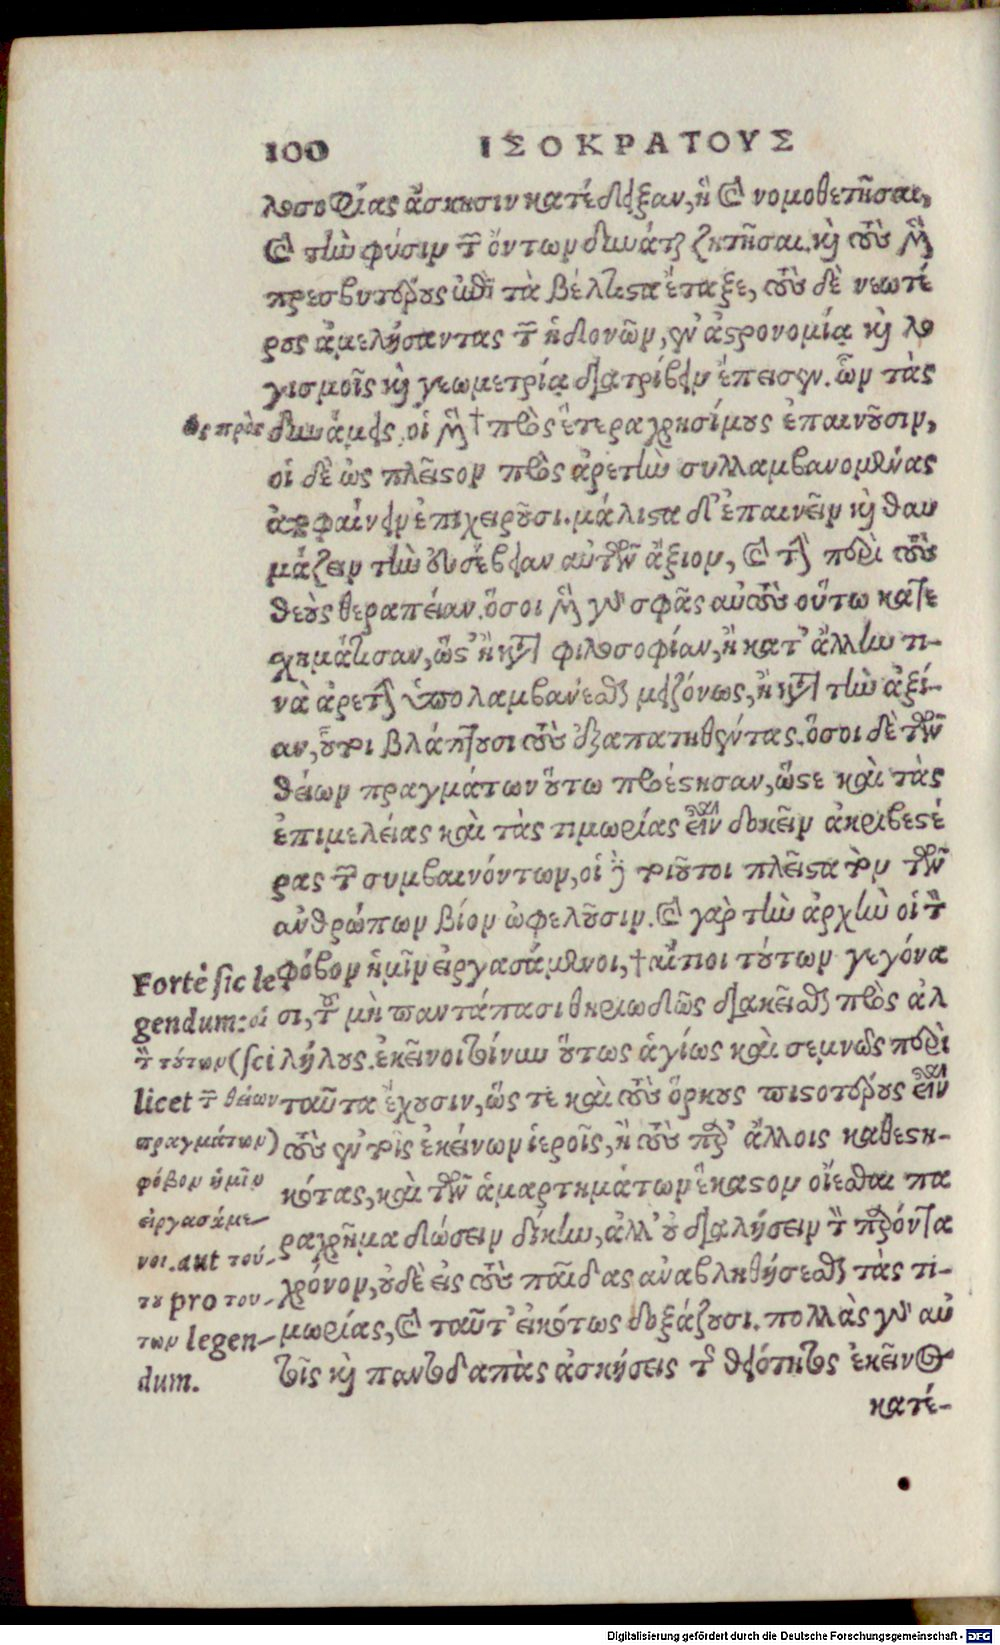 100 ΙΣΟΚΡΑΤΟΥΣ
λοσοφίας ἄσκησιν κατέδειξαν, ἣ καὶ νομοθετῆσαι,
καὶ τὴν φύσιν τῶν ὄντων δύναται ζητῆσαι. καὶ τοὺς μὲν
πρεσβυτέρους ἐπὶ τὰ βέλτιστα ἔταξε, τοὺς δὲ νεωτέ
ρους ἀμελήσαντας τῶν ἡδονῶν, ἐν ἀστρονομίᾳ καὶ λο
γισμοῖς καὶ γεωμετρίᾳ διατρίβειν ἔπεισεν. ὧν τὰς
δυνάμεις οἱ μὲν † πρὸς ἕτερα χρησίμους ἐπαινοῦσιν,
οἱ δὲ ὡς πλεῖστον πρὸς ἀρετὴν συλλαμβανομένας
ἀποφαίνειν ἐπιχειροῦσι. μάλιστα δ' ἐπαινεῖν καὶ θαυ
μάζειν τὴν εὐσέβειαν αὐτῶν ἄξιον, καὶ τὴν περὶ τοὺς
θεοὺς θεραπείαν. ὅσοι μὲν γὰρ σφᾶς αὐτοὺς οὕτω κατε
χημάτισαν, ὥστ' ἢ κατὰ φιλοσοφίαν, ἢ κατ' ἄλλην τι-
νὰ ἀρετὴν ὑπολαμβάνεσθαι μειζόνως, ἢ κατὰ τὴν ἀξί-
αν, οὗτοι βλάπτουσι τοὺς ἐξαπατηθέντας. ὅσοι δὲ τῶν
θείων πραγμάτων οὕτω προέστησαν, ὥστε καὶ τὰς
ἐπιμελείας καὶ τὰς τιμωρίας εἶναι δοκεῖν ἀκριβεστέ
ρας τῶν συμβαινόντων, οἱ δὲ τοιοῦτοι πλεῖστα τὸν τῶν
ἀνθρώπων βίον ὠφελοῦσιν. καὶ γὰρ τὴν ἀρχὴν οἱ τὸν
φόβον ἡμῖν εἰργασάμενοι, † αἴτιοι τούτων γεγόνα
σι, τοῦ μὴ παντάπασι θηριωδῶς διακεῖσθαι πρὸς ἀλ
λήλους. ἐκεῖνοι τοίνυν οὕτως ἁγίως καὶ σεμνῶς περὶ
ταῦτα ἔχουσιν, ὥστε καὶ τοὺς ὅρκους πιστοτέρους εἶναι
τοὺς ἐν τοῖς ἐκείνων ἱεροῖς, ἢ τοὺς παρ' ἄλλοις καθεστη-
κότας, καὶ τῶν ἁμαρτημάτων ἕκαστον οἴεσθαι πα
ραχρῆμα δώσειν δίκην, ἀλλ' οὐ διαλήσειν τὸν παρόντα
χρόνον, οὐδὲ εἰς τοὺς παῖδας ἀναβληθήσεσθαι τὰς τι-
μωρίας, καὶ ταῦτ' εἰκότως δοξάζουσι. πολλὰς γὰρ αὐ
τοῖς καὶ παντοδαπὰς ἀσκήσεις τῆς ὁσιότητος ἐκεῖνος
κατέ-
ὡς πρὸς
Fortè sic le
gendum: οἱ
τὸν τούτων (sci
licet τῶν θείων
πραγμάτων)
φόβον ἡμῖν
εἰργασάμε-
νοι. aut τού-
του pro τού-
των legen-
dum.
Digitalisierung gefördert durch die Deutsche Forschungsgemeinschaft - DFG